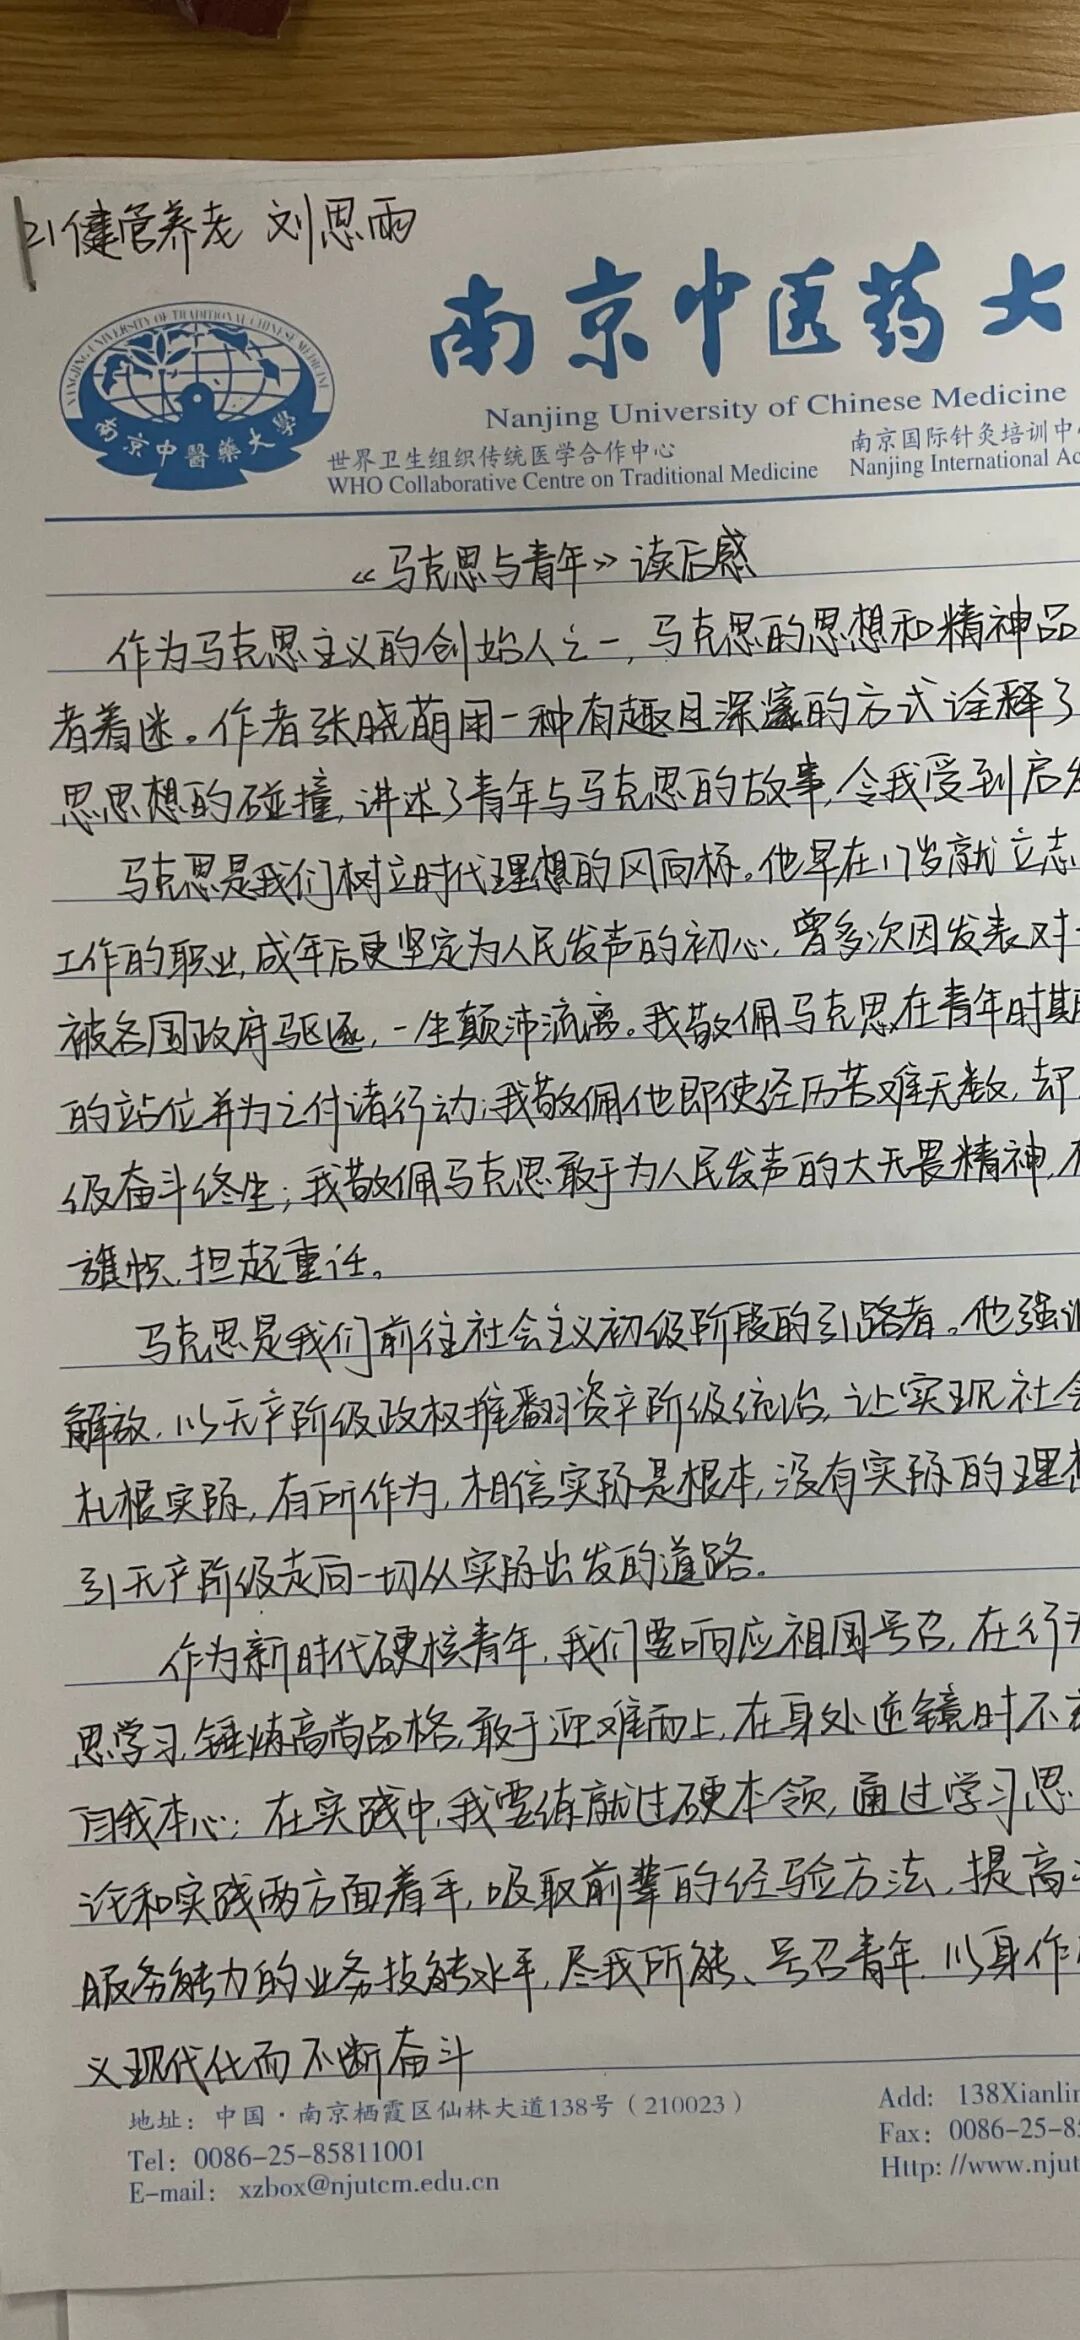 21健管养老 刘思雨
南京中医药大
NANJING UNIVERSITY OF TRADITIONAL CHINESE MEDICINE
南京中醫藥大學
Nanjing University of Chinese Medicine
世界卫生组织传统医学合作中心 南京国际针灸培训中
WHO Collaborative Centre on Traditional Medicine Nanjing International Ac
《马克思与青年》读后感
作为马克思主义的创始人之一,马克思的思想和精神品
者着迷。作者张晓萌用一种有趣且深邃的方式诠释了
思思想的碰撞,讲述了青年与马克思的故事,令我受到启发
马克思是我们树立时代理想的风向标。他早在17岁就立志
工作的职业,成年后更坚定为人民发声的初心,曾多次因发表对
被各国政府驱逐,一生颠沛流离。我敬佩马克思在青年时期
的站位并为之付诸行动;我敬佩他即使经历苦难无数,却
级奋斗终生;我敬佩马克思敢于为人民发声的大无畏精神,
旗帜,担起重任。
马克思是我们前往社会主义初级阶段的引路者。他强
解放,以无产阶级政权推翻资产阶级统治,让实现社会
札根实际,有所作为,相信实际是根本,没有实际的理想
引无产阶级走向一切从实际出发的道路。
作为新时代硬核青年,我们要响应祖国号召,在行
思学习,锤炼高尚品格,敢于迎难而上,在身处逆镜时不
自我本心;在实践中,我要练就过硬本领,通过学习思
论和实践两方面着手,吸取前辈的经验方法,提高
服务能力的业务技能水平,尽我所能、号召青年,以身作
义现代化而不断奋斗
地址:中国·南京栖霞区仙林大道138号(210023) Add: 138Xianlin
Tel: 0086-25-85811001 Fax: 0086-25-85
E-mail: xzbox@njutcm.edu.cn Http: //www.njut